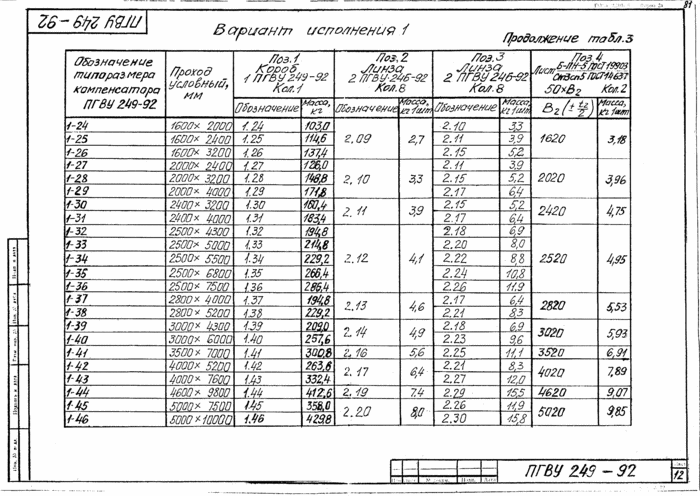 ПГВУ 249-92
81
Вариант исполнения 1
Продолжение табл.3
Обозначение типоразмера компенсатора ПГВУ 249-92 | Проход условный, мм | Поз.1 Короб 1 ПГВУ 249-92 Кол.1 | Поз.2 Линза 2 ПГВУ 246-92 Кол.8 | Поз.3 Линза 2 ПГВУ 246-92 Кол.8 | Поз 4 Лист Б-ПН-5 ГОСТ 19903 Ст3сп5 ГОСТ 14637 50×B₂ Кол 2
Обозначение | Масса, кг | Обозначение | Масса, кг 1шт | Обозначение | Масса, кг 1шт | B₂ (± t₂/2) | Масса, кг 1шт
1-24 1600×2000 1.24 103,0 2.09 2,7 2.10 3,3 1620 3,18
1-25 1600×2400 1.25 114,6 2.11 3,9
1-26 1600×3200 1.26 137,4 2.15 5,2
1-27 2000×2400 1.27 126,0 2.10 3,3 2.11 3,9 2020 3,96
1-28 2000×3200 1.28 148,8 2.15 5,2
1-29 2000×4000 1.29 171,8 2.17 6,4
1-30 2400×3200 1.30 160,4 2.11 3,9 2.15 5,2 2420 4,75
1-31 2400×4000 1.31 183,4 2.17 6,4
1-32 2500×4300 1.32 194,8 2.12 4,1 2.18 6,9 2520 4,95
1-33 2500×5000 1.33 214,8 2.20 8,0
1-34 2500×5500 1.34 229,2 2.22 8,8
1-35 2500×6800 1.35 266,4 2.24 10,8
1-36 2500×7500 1.36 286,4 2.26 11,9
1-37 2800×4000 1.37 194,8 2.13 4,6 2.17 6,4 2820 5,53
1-38 2800×5200 1.38 229,2 2.21 8,3
1-39 3000×4300 1.39 209,0 2.14 4,9 2.18 6,9 3020 5,93
1-40 3000×6000 1.40 257,6 2.23 9,6
1-41 3500×7000 1.41 300,8 2.16 5,6 2.25 11,1 3520 6,91
1-42 4000×5200 1.42 263,6 2.17 6,4 2.21 8,3 4020 7,89
1-43 4000×7600 1.43 332,4 2.27 12,0
1-44 4600×9800 1.44 412,6 2.19 7,4 2.29 15,5 4620 9,07
1-45 5000×7500 1.45 358,0 2.20 8,0 2.26 11,9 5020 9,85
1-46 5000×10000 1.46 429,8 2.30 15,8
ПГВУ 249-92
12